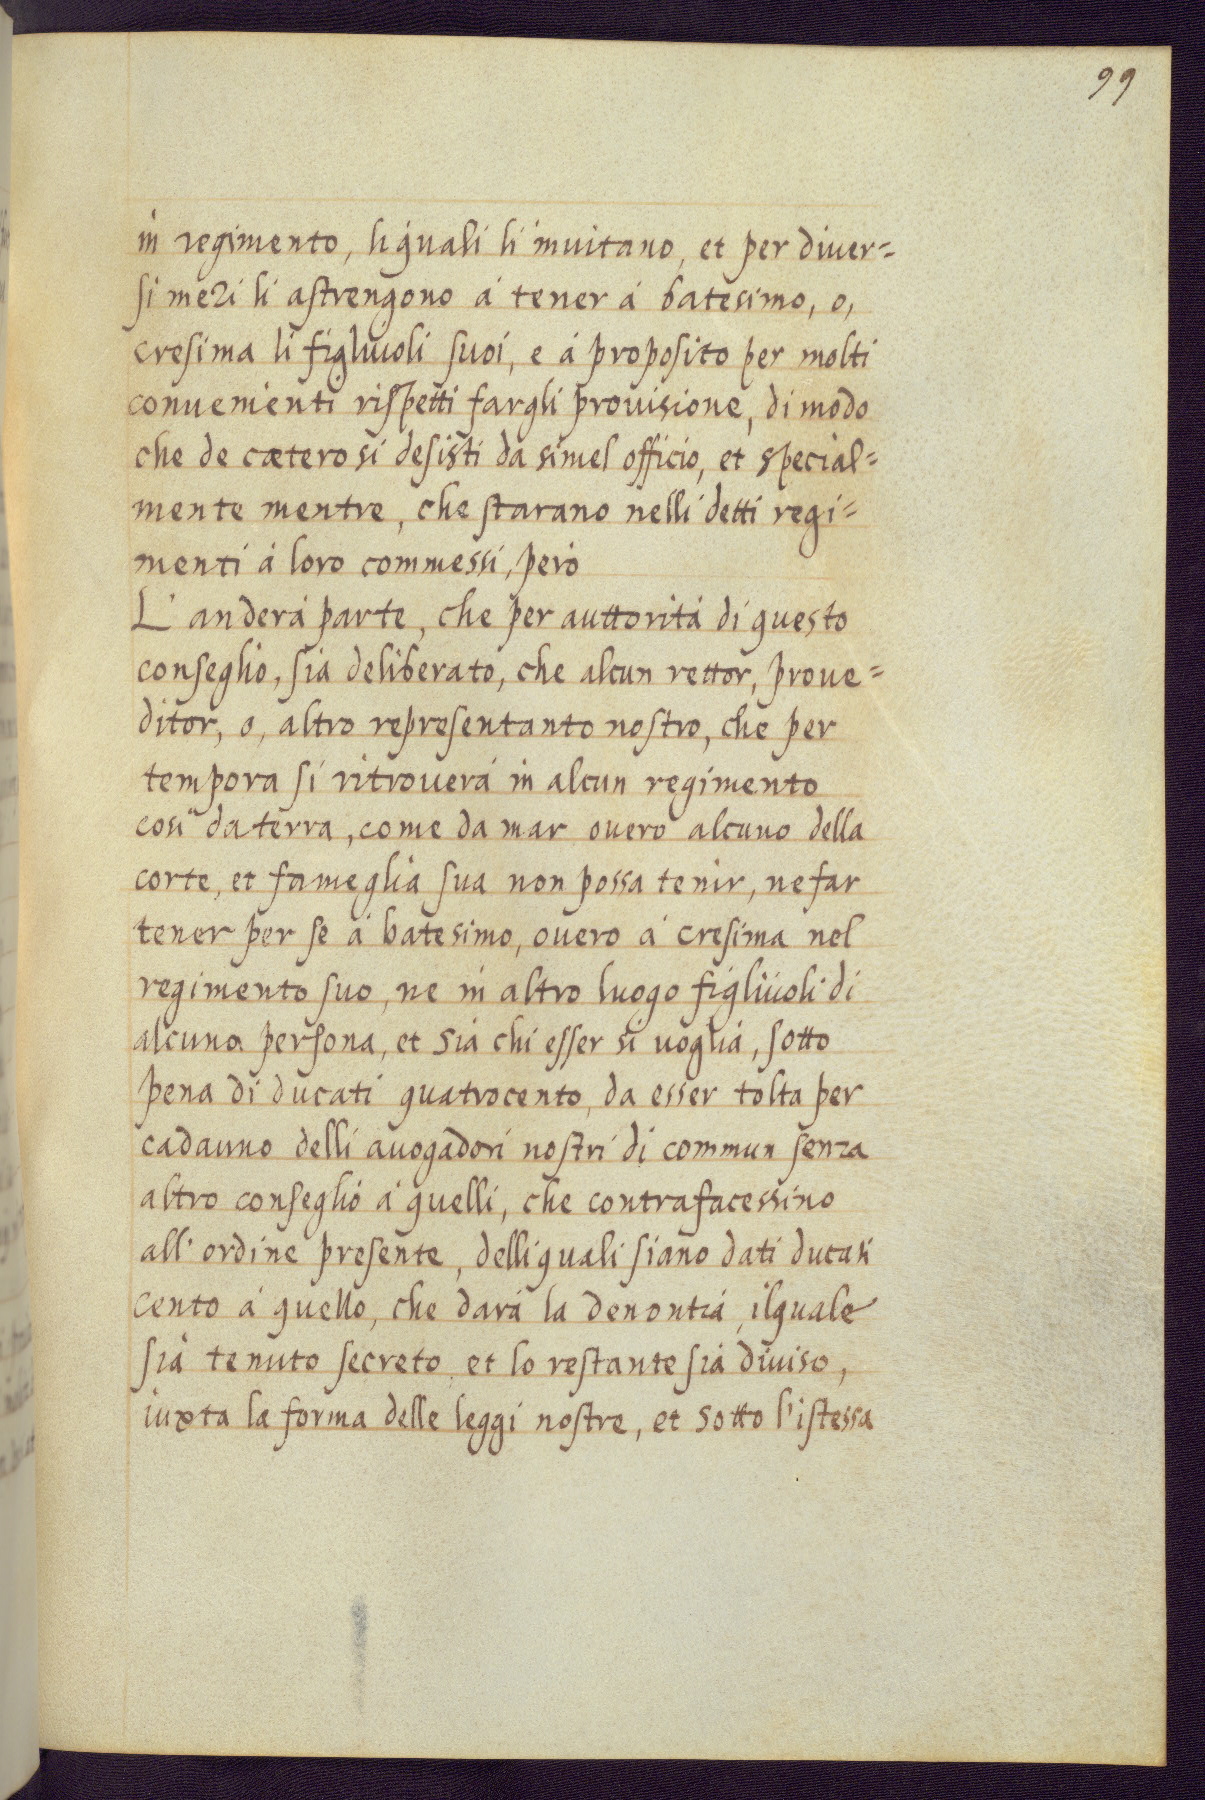 99
in regimento, li quali li inuitano, et per diuer=
si mezi li astrengono á tener á batesimo, o,
cresima li figliuoli suoi, e á proposito per molti
conuenienti rispetti fargli prouisione, di modo
che de cætero si desisti da simel officio, et special=
mente mentre, che starano nelli detti regi=
menti á loro commessi, peró
L' anderá parte, che per auttoritá di questo
conseglio, sia deliberato, che alcun rettor, proue=
ditor, o, altro representanto nostro, che per
tempora si ritrouerá in alcun regimento
cosi da terra, come da mar ouero alcuno della
corte, et fameglia sua non possa tenir, ne far
tener per se á batesimo, ouero á cresima nel
regimento suo, ne in altro luogo figliuoli di
alcuna persona, et sia chi esser si uoglia, sotto
pena di ducati quatrocento, da esser tolta per
cadauno delli auogadori nostri di commun senza
altro conseglio á quelli, che contrafacessino
all' ordine presente, delli quali siano dati ducati
cento á quello, che dará la denontia, ilquale
sia tenuto secreto, et lo restante sia diuiso,
iuxta la forma delle leggi nostre, et sotto l'istessa